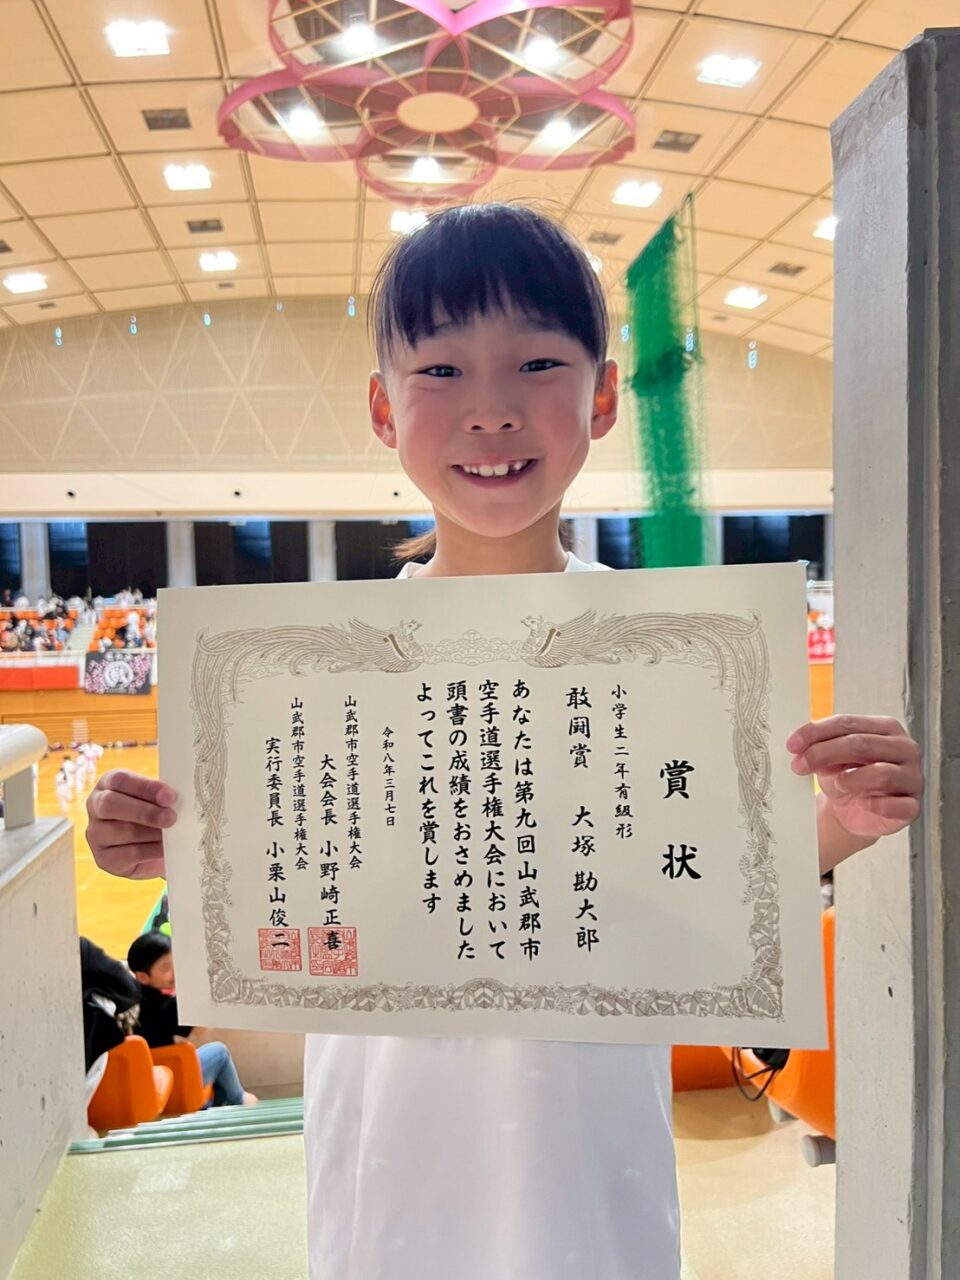 賞状
小学生二年有級形
敢闘賞 大塚勘大郎
あなたは第九回山武郡市
空手道選手権大会において
頭書の成績をおさめました
よってこれを賞します
令和八年三月七日
山武郡市空手道選手権大会
大会会長 小野崎正喜
山武郡市空手道選手権大会
実行委員長 小栗山俊二